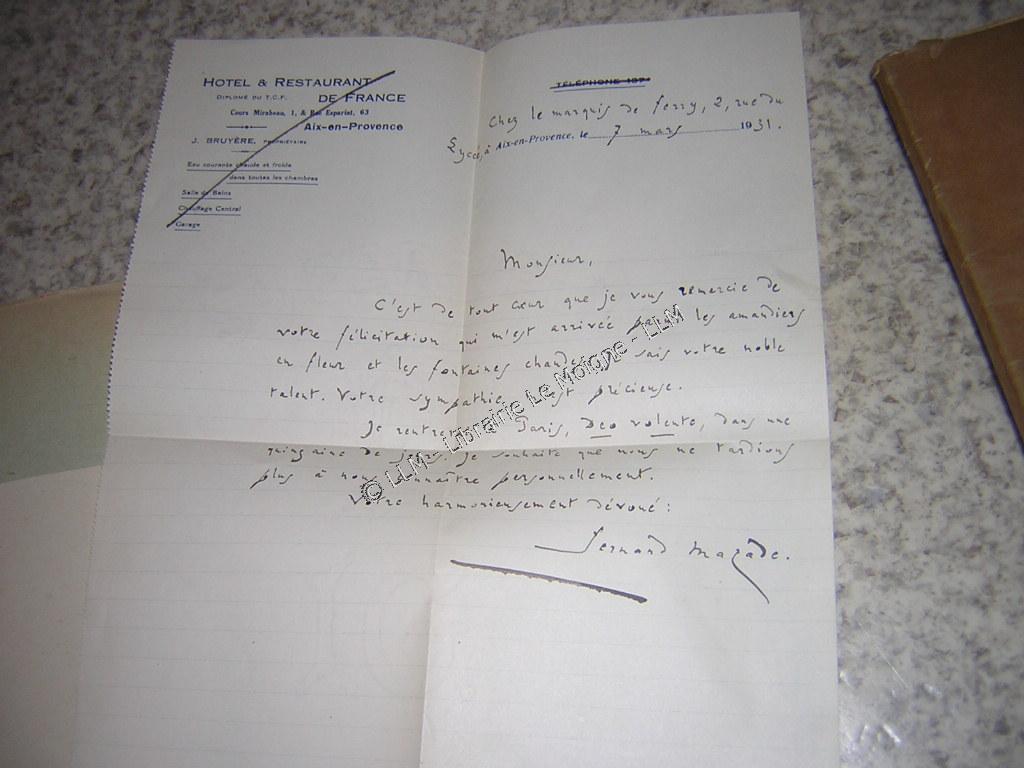 HOTEL & RESTAURANT
DIPLOMÉ DU T.C.F. DE FRANCE
Cours Mirabeau, 1, & Rue Espariat, 63
Aix-en-Provence
J. BRUYÈRE, PROPRIÉTAIRE
Eau courante chaude et froide
dans toutes les chambres
Salle de Bains
Chauffage Central
Garage
TÉLÉPHONE
Chez le marquis de Ferry, 2, rue du
Lycée, à Aix-en-Provence, le 7 mars 1931.
Monsieur,
C'est de tout cœur que je vous remercie de
votre félicitation qui m'est arrivée parmi les amandiers
en fleur et les fontaines chaudes. Je sais votre noble
talent. Votre sympathie est précieuse.
Je rentrerai à Paris, Deo volente, dans une
quinzaine de jours. Je souhaite que nous ne tardions
plus à nous connaître personnellement.
Votre harmonieusement dévoué :
Fernand Mazade.
© LLM - Librairie Le Moigne - LLM